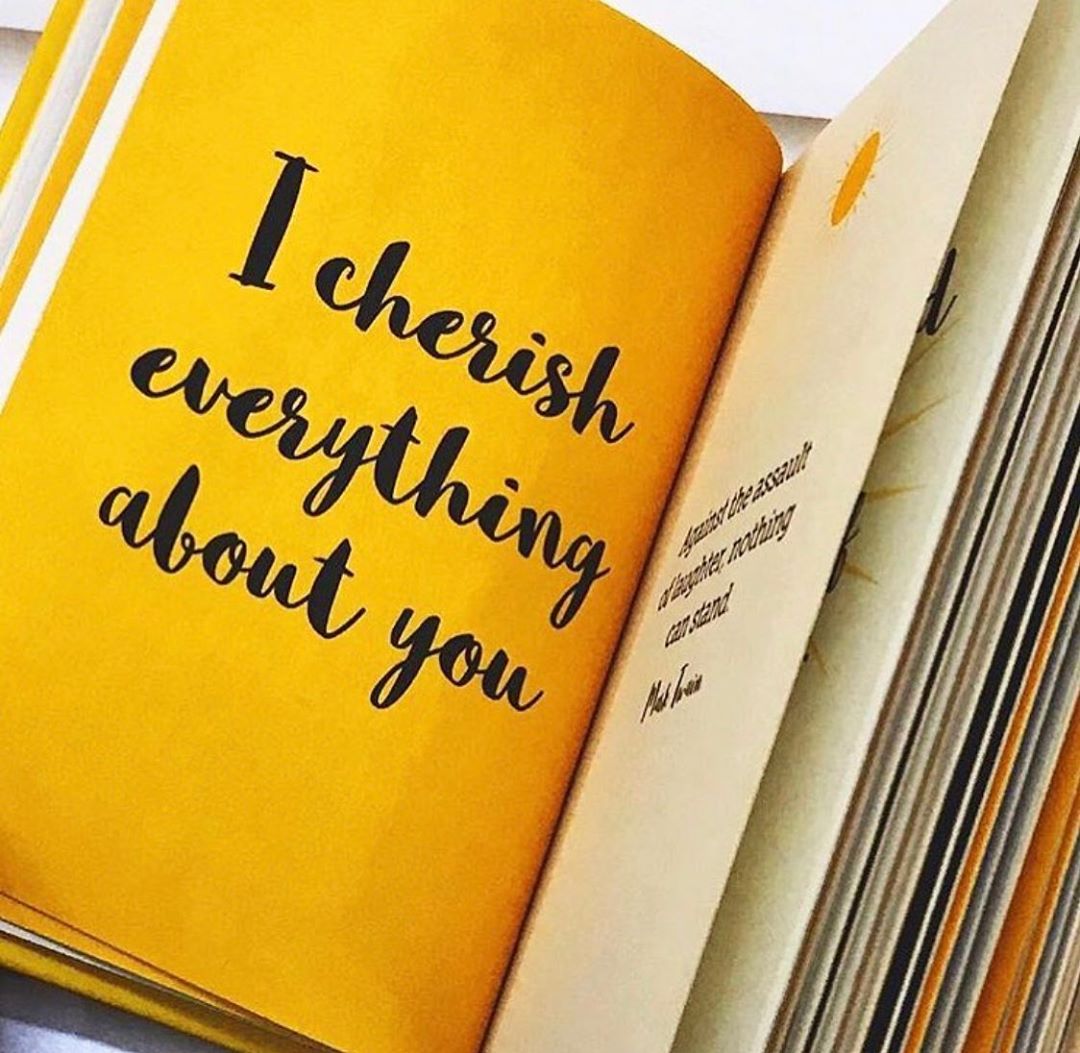 I cherish
everything
about you
Against the assault
of laughter, nothing
can stand.
Mark Twain
d
f